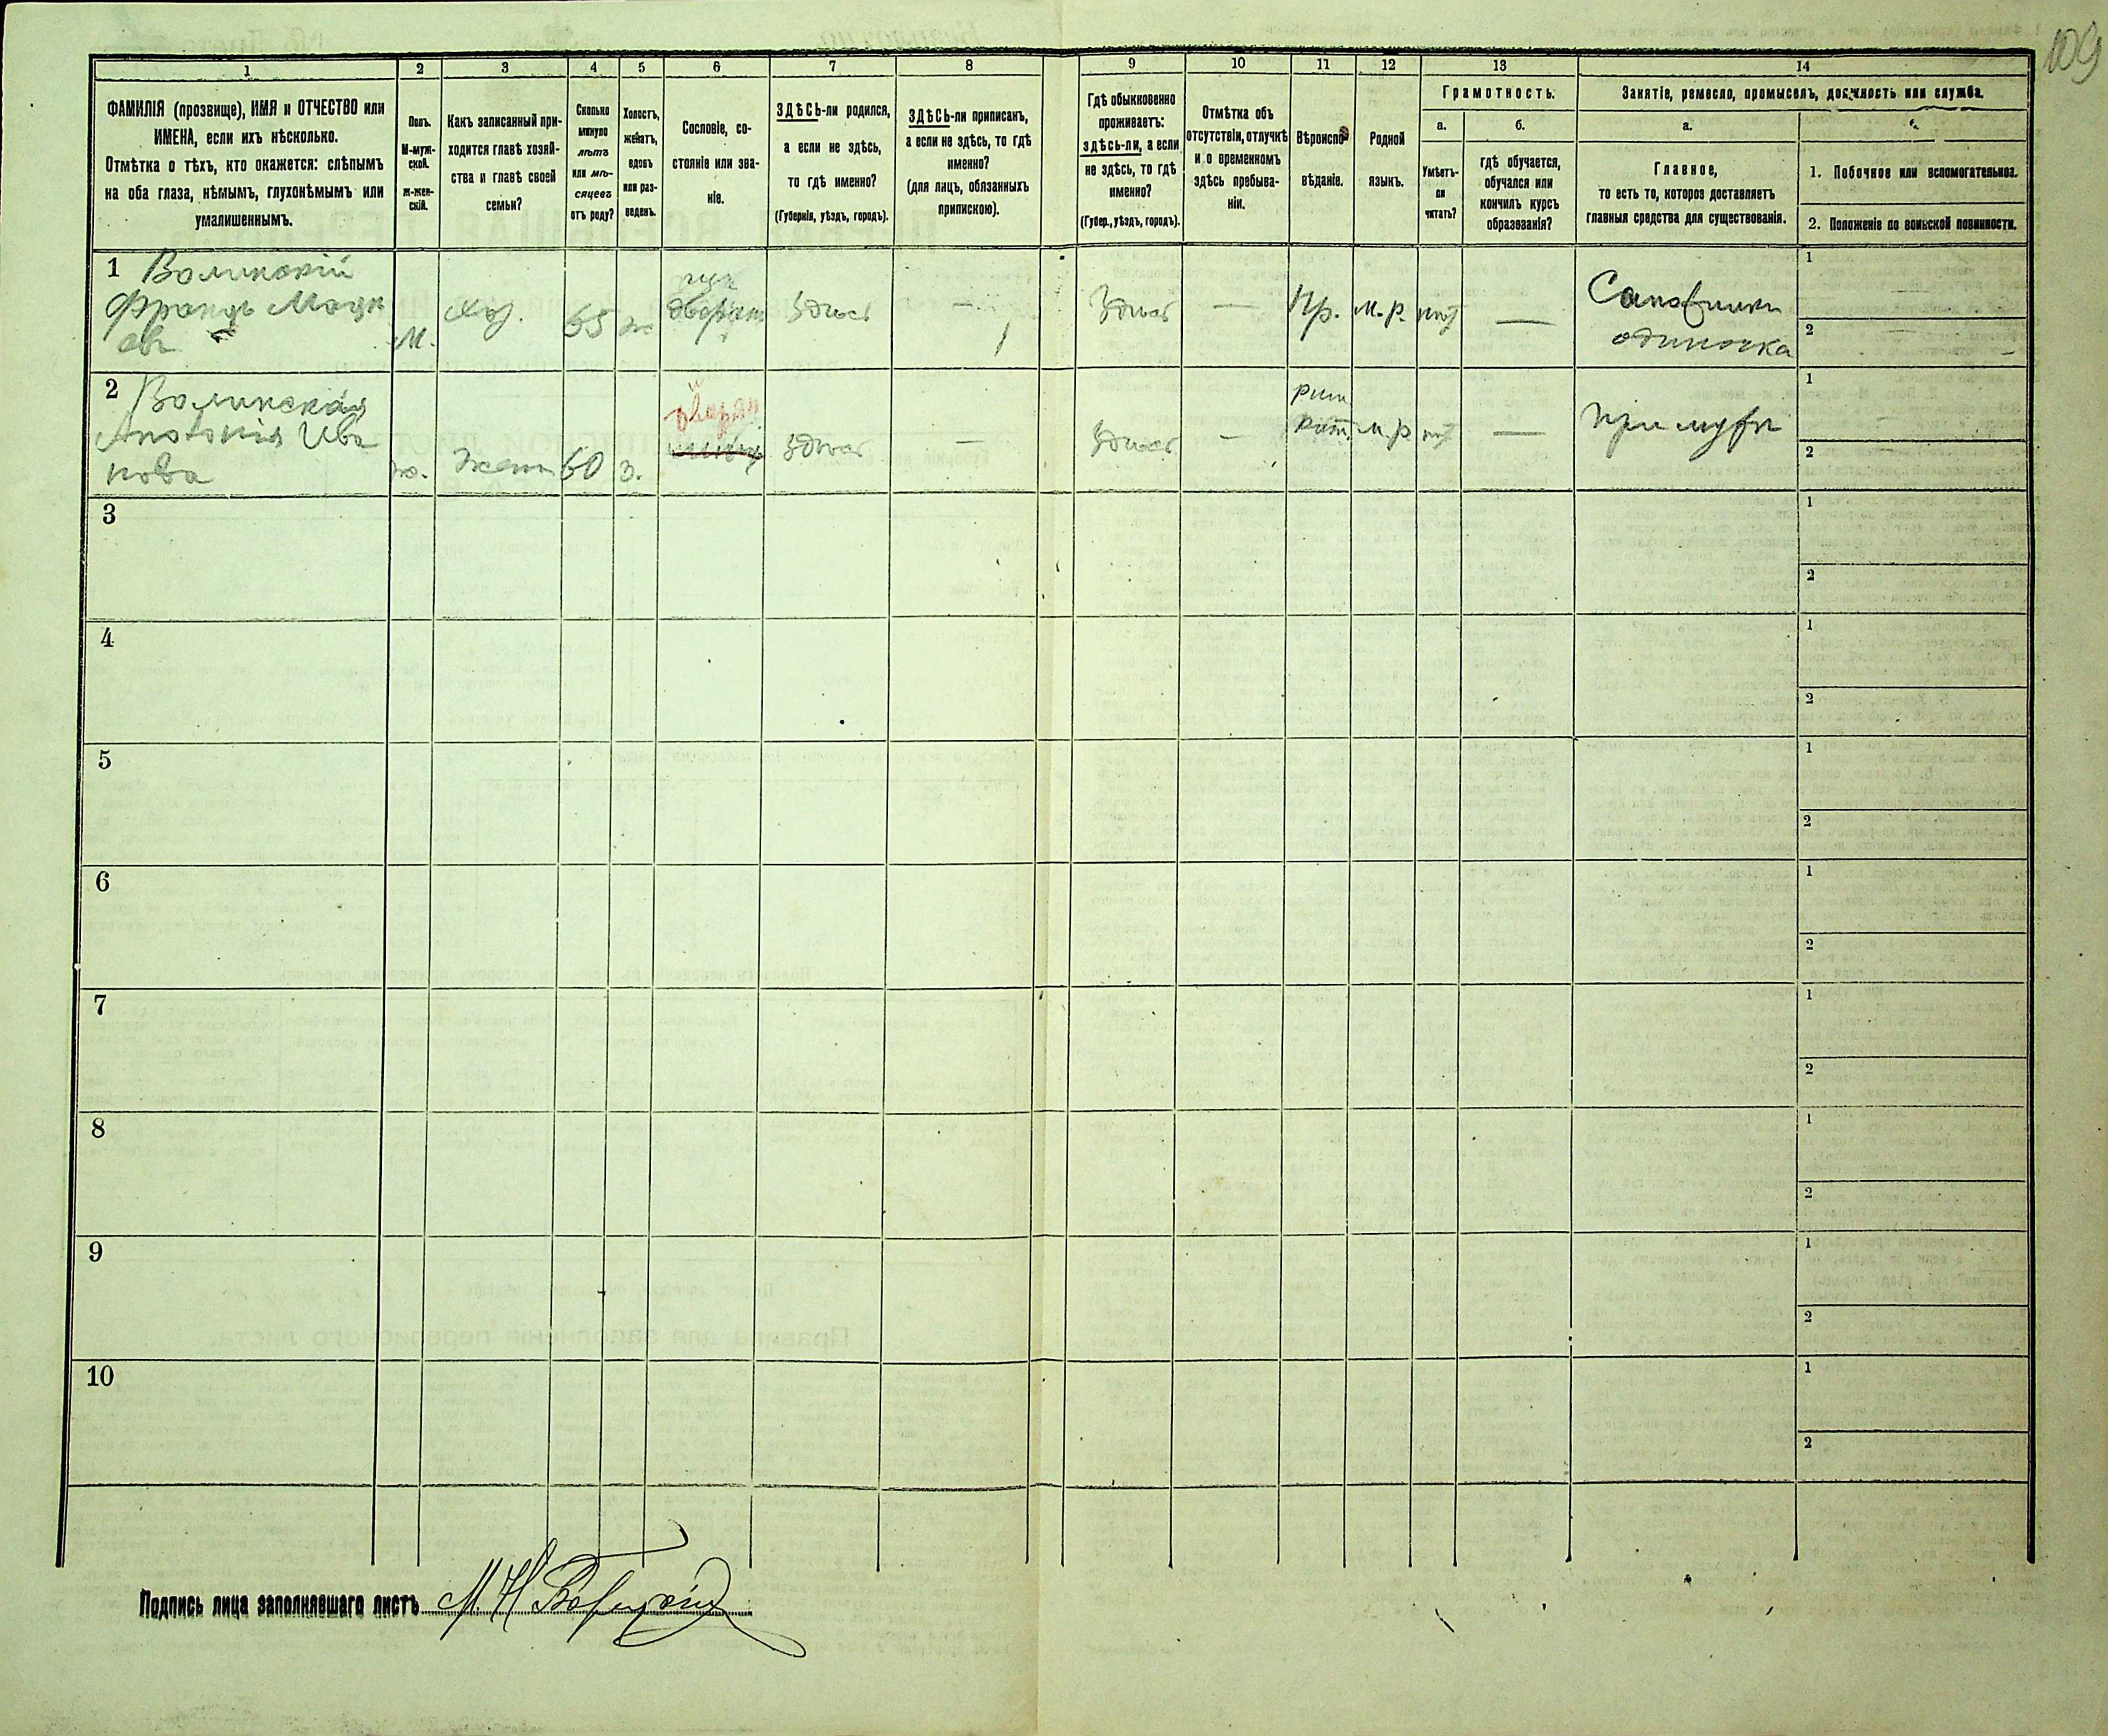 109
1
2
3
4
5
6
7
8
9
10
11
12
13
14
ФАМИЛІЯ (прозвище), ИМЯ и ОТЧЕСТВО или
ИМЕНА, если ихъ нѣсколько.
Отмѣтка о тѣхъ, кто окажется: слѣпымъ
на оба глаза, нѣмымъ, глухонѣмымъ или
умалишеннымъ.
Полъ.
М-муж-
ской.
ж-жен-
скій.
Какъ записанный при-
ходится главѣ хозяй-
ства и главѣ своей
семьи?
Сколько
минуло
лѣтъ
или мѣ-
сяцевъ
отъ роду?
Холостъ,
женатъ,
вдовъ
или раз-
веденъ.
Сословіе, со-
стояніе или зва-
ніе.
ЗДѢСЬ-ли родился,
а если не здѣсь,
то гдѣ именно?
(Губернія, уѣздъ, городъ).
ЗДѢСЬ-ли приписанъ,
а если не здѣсь, то гдѣ
именно?
(для лицъ, обязанныхъ
припискою).
Гдѣ обыкновенно
проживаетъ:
здѣсь-ли, а если
не здѣсь, то гдѣ
именно?
(Губер., уѣздъ, городъ).
Отмѣтка объ
отсутствіи, отлучкѣ
и о временномъ
здѣсь пребыва-
ніи.
Вѣроиспо-
вѣданіе.
Родной
языкъ.
Грамотность.
а.
Умѣетъ-
ли
читать?
б.
гдѣ обучается,
обучался или
кончилъ курсъ
образованія?
Занятіе, ремесло, промыселъ, должность или служба.
а.
Главное,
то есть то, которое доставляетъ
главныя средства для существованія.
1. Побочное или вспомогательное.
2. Положеніе по воинской повинности.
1 Волинскій
Францъ
М.
Хоз.
65
ж
Здѣсь
—
Здѣсь
—
Пр.
м.р.
нѣт
—
одиночка
1
2
2 Волинская
Ива
нова
ж.
Жена
60
з.
дворян
Здѣсь
—
Здѣсь
—
Рим
Кат.
м.р
нѣт
—
При мужѣ
1
2
3
1
2
4
1
2
5
1
2
6
1
2
7
1
2
8
1
2
9
1
2
10
1
2
Подпись лица заполнявшаго листъ М. Н.